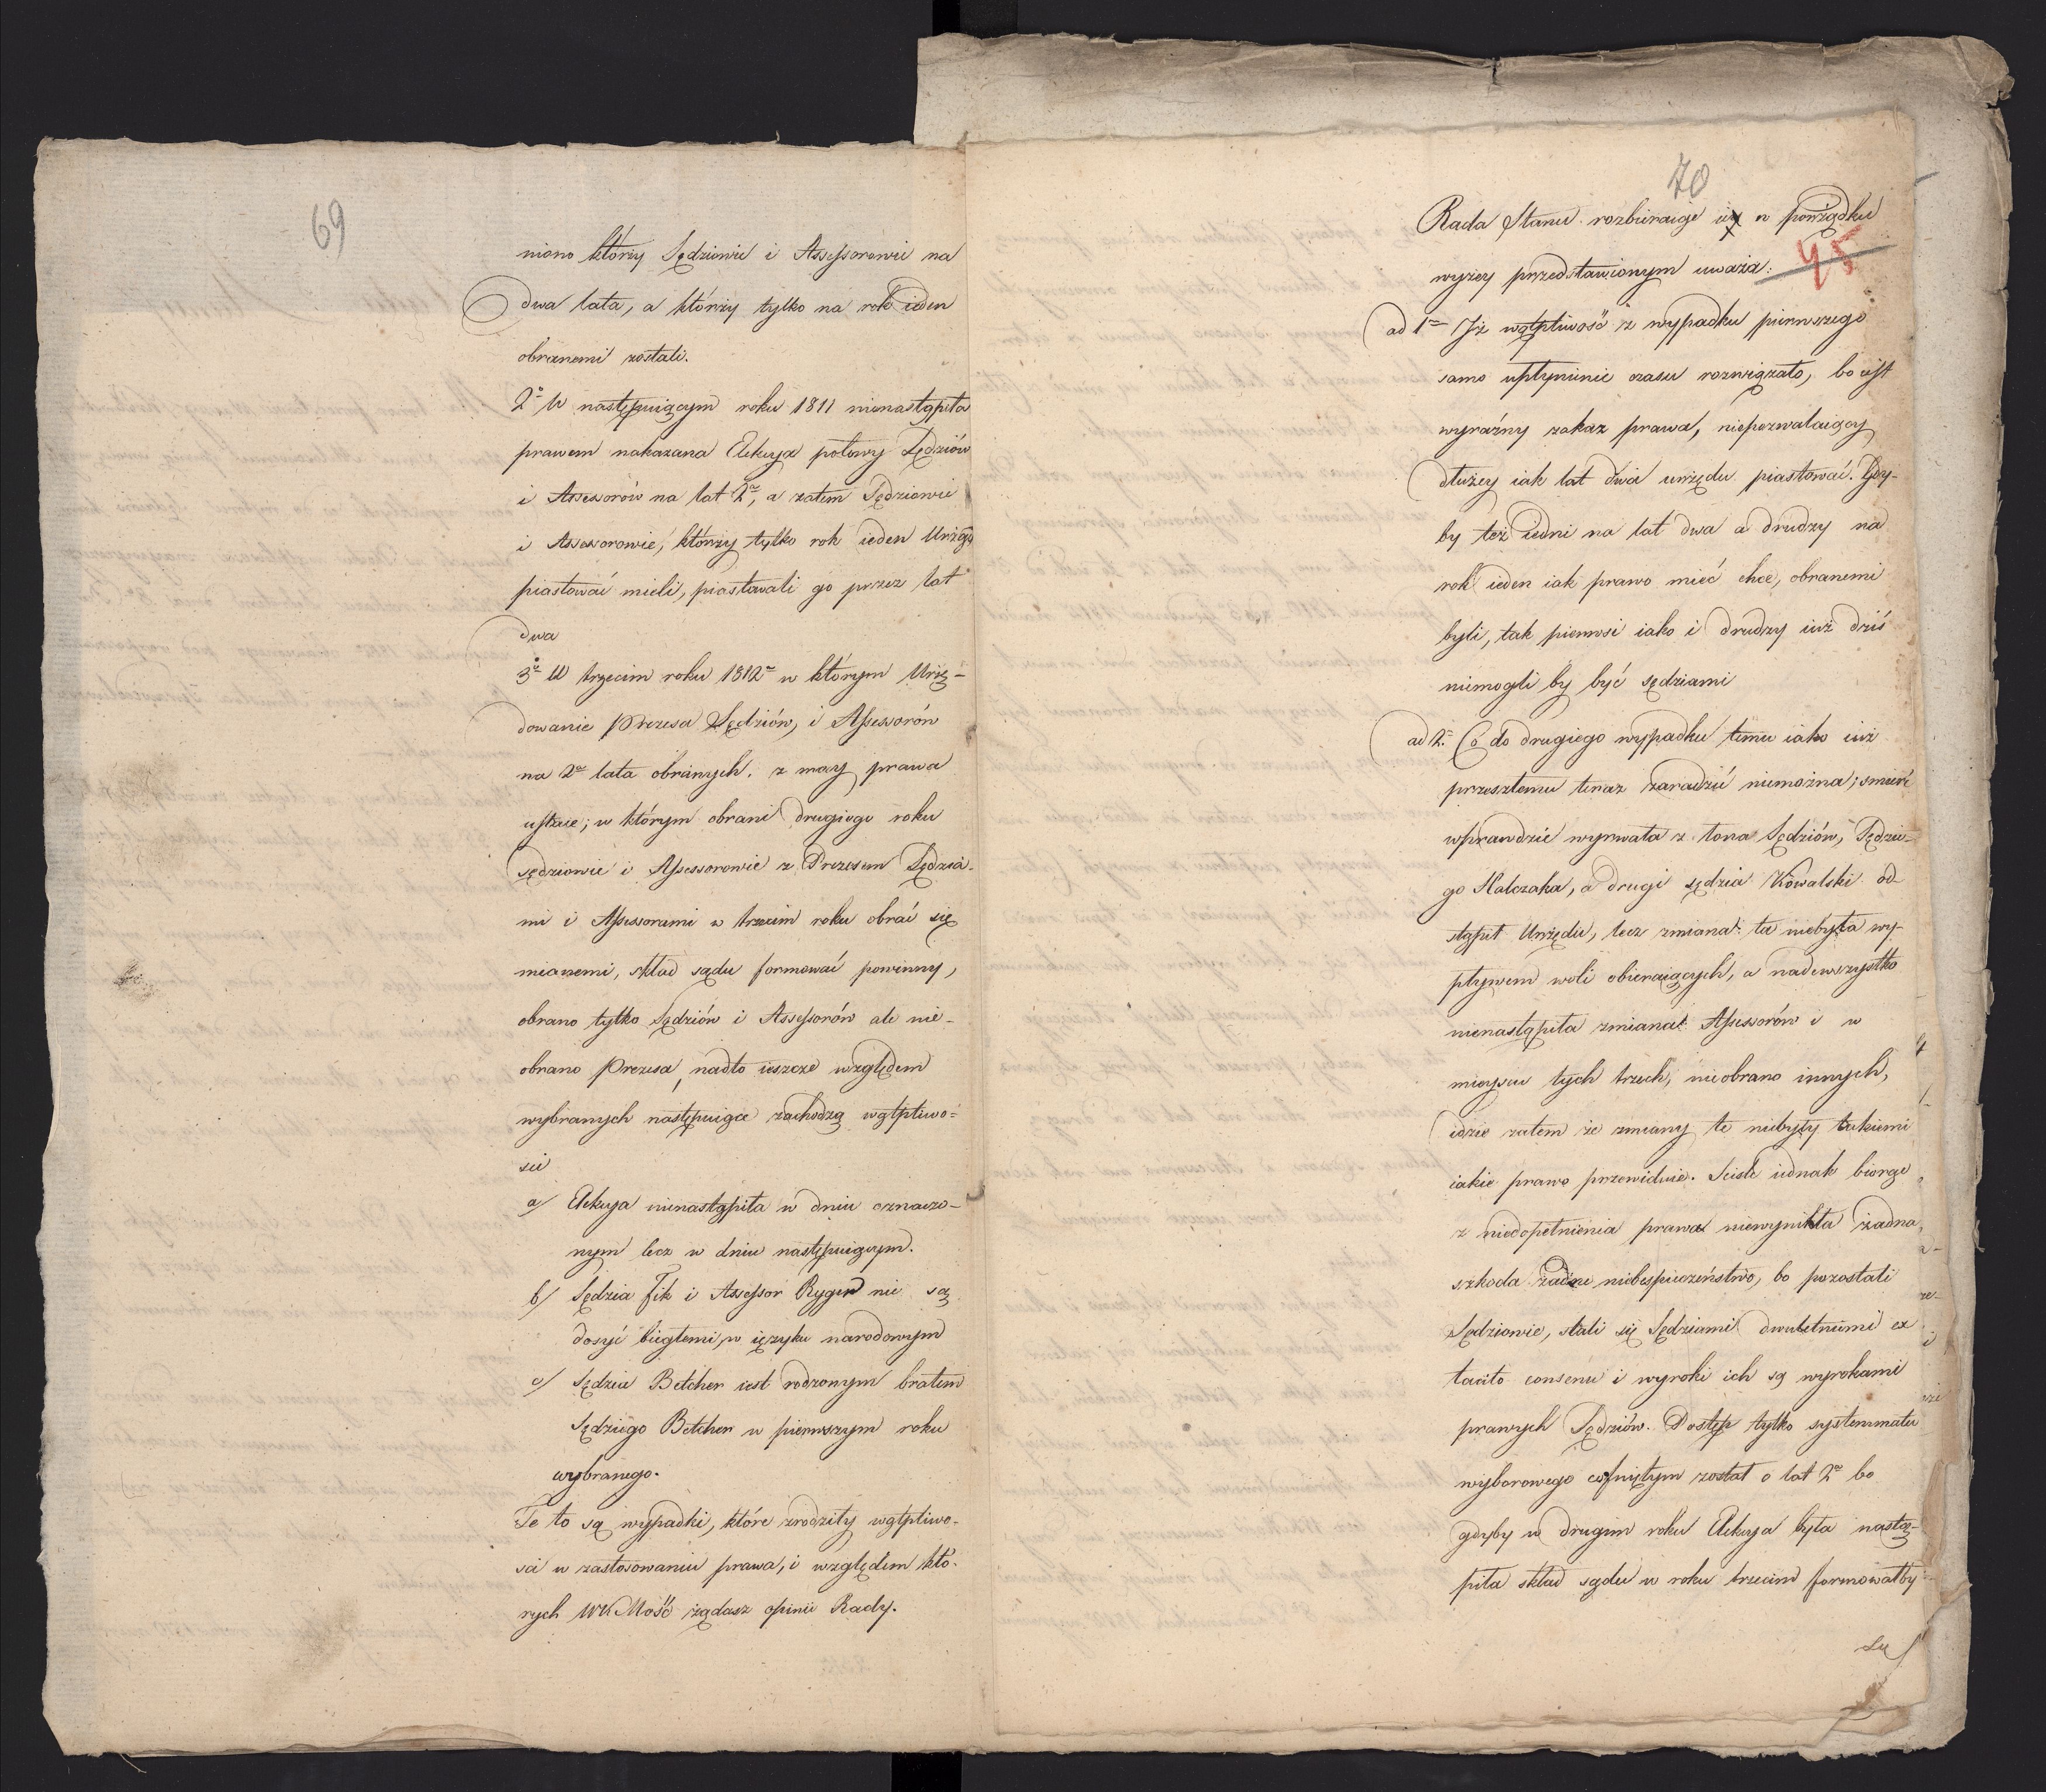 69
niono którzy Sędziowie i Assessorowie na
dwa lata, a którzy tylko na rok ieden
obranemi zostali.
2º W następuiącym roku 1811 nienastąpiła
prawem nakazana Elekcya połowy Sędziów
i Assessorów na lat 2ª, a zatem Sędziowie
i Assessorowie, którzy tylko rok ieden Urząd
piastować mieli, piastowali go przez lat
dwa
3º W trzecim roku 1812º w którym Urzę-
dowanie Prezesa Sędziów, i Assessorów
na 2ª lata obranych, z mocy prawa
ustaie; w którym obrani drugiego roku
Sędziowie i Assessorowie z Prezesem Sędzia-
mi i Assessorami w trzecim roku obrać się
mianemi, skład sądu formować powinny,
obrano tylko Sędziów i Assessorów ale nie-
obrano Prezesa, nadto ieszcze względem
wybranych następuiące zachodzą wątpliwo-
sci
a/ Elekcya nienastąpiła w dniu oznaczo-
nym lecz w dniu następuiącym.
b/ Sędzia Fik i Assessor Rygier nie są
dosyć biegłemi w ięzyku narodowym
c/ Sędzia Betcher iest rodzonym bratem
Sędziego Betcher w pierwszym roku
wybranego.
Te to są wypadki, które zrodziły wątpliwo-
sci w zastosowaniu prawa, i względem któ-
rych WKMość żądasz opinii Rady.
70
Rada Stanu rozbieraiąc ie w porządku
45
wyżey przedstawionym uważa:
ad 1º Iż wątpliwość z wypadku pierwszego
samo upłynienie czasu rozwiązało, bo iest
wyraźny zakaz prawa, niepozwalaiący
dłużey iak lat dwa urzędu piastować. Gdy-
by też iedni na lat dwa a drudzy na
rok ieden iak prawo mieć chce, obranemi
byli, tak pierwsi iako i drudzy iuż dziś
niemogli by być sędziami
ad 2º Co do drugiego wypadku temu iako iuż
przeszłemu teraz zaradzić niemożna; smierć
wprawdzie wyrwała z łona Sędziów, Sędzie-
go Halczaka, a drugi sędzia Kowalski od-
stąpił Urzędu, lecz zmiana ta niebyła wy-
pływem woli obieraiących, a nadewszystko
nienastąpiła zmiana Assessorów i w
mieyscu tych trzech, nieobrano innych,
idzie zatem że zmiany te niebyły takiemi
iakie prawo przewiduie. Sciśle iednak biorąc
z niedopełnienia prawa niewynikła żadna
szkoda żadne niebespieczeństwo, bo pozostali
Sędziowie, stali się Sędziami dwuletniemi ex
tacito consensu i wyroki ich są wyrokami
prawych Sędziów. Postęp tylko systemmatu
wyborowego cofniętym został o lat 2ª bo
gdyby w drugim roku Elekcya była nastą-
piła skład sądu w roku trzecim formowałby